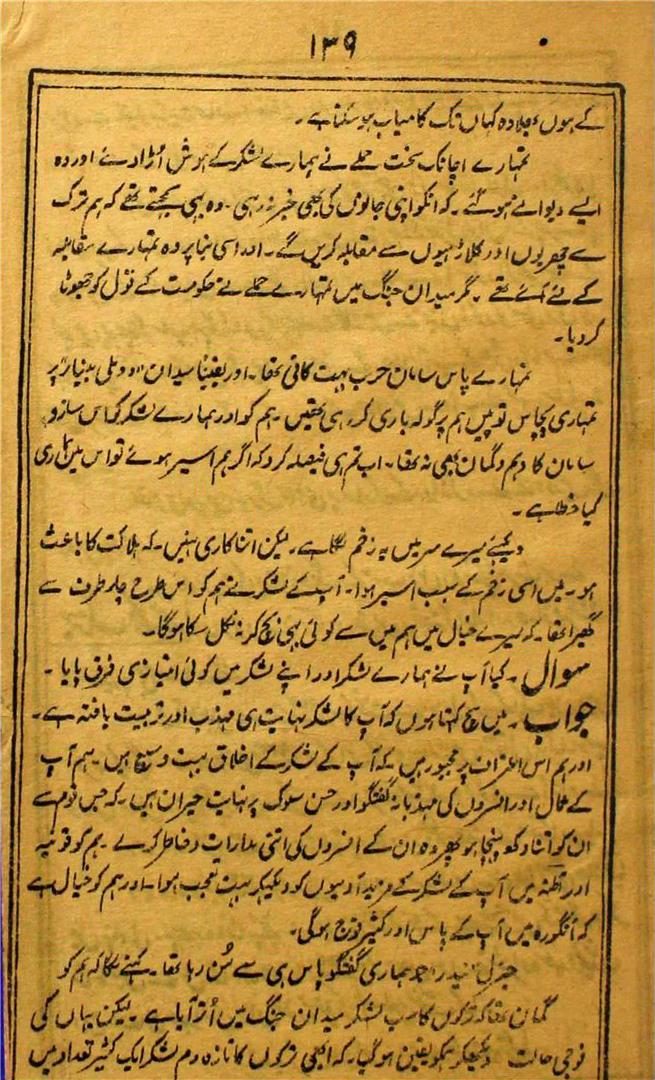 ۱۳۹
کے ہوں بھلا وہ کہاں تک کامیاب ہو سکتا ہے۔
تمہارے اچانک سخت حملے نے ہمارے لشکر کے ہوش اُڑا دئے اور وہ
ایسے دیوانے ہو گئے۔ کہ انکو اپنی جانوں کی بھی خبر نہ رہی۔ وہ یہی سمجھتے تھے کہ ہم ترک
سے چھریوں اور کلاڑہیوں سے مقابلہ کریں گے۔ اور اسی بنا پر وہ تمہارے مقابلہ
کے لئے آئے تھے۔ مگر میدان جنگ میں تمہارے حملے نے حکومت کے قول کو جھوٹا
کر دیا۔
تمہارے پاس سامان حرب بہت کافی تھا۔ اور یقیناً میدان پر
تمہاری پچاس توپیں ہم پر گولہ باری کر رہی تھیں۔ ہم کو اور ہمارے لشکر کو اس ساز و
سامان کا وہم و گمان بھی نہ تھا۔ اب تم ہی فیصلہ کرو کہ اگر ہم اسیر ہوئے تو اس میں ہماری
کیا خطا ہے۔
دیکھئے میرے سر میں یہ زخم لگا ہے۔ لیکن اتنا کاری نہیں۔ کہ ہلاکت کا باعث
ہو۔ میں اسی زخم کے سبب اسیر ہوا۔ آپ کے لشکر نے ہم کو اس طرح چار طرف سے
گھیرا تھا۔ کہ میرے خیال میں ہم میں سے کوئی بھی بچ کر نہ نکل سکا ہوگا۔
سوال۔ کیا آپ نے ہمارے لشکر اور اپنے لشکر میں کوئی امتیازی فرق پایا۔
جواب۔ میں سچ کہتا ہوں کہ آپ کا لشکر نہایت ہی مہذب اور تربیت یافتہ ہے۔
اور ہم اس اعتراف پر مجبور ہیں۔ کہ آپ کے لشکر کے اخلاق بہت وسیع ہیں۔ ہم آپ
کے عمال اور افسروں کی مہذبانہ گفتگو اور حسن سلوک پر نہایت حیران ہیں۔ کہ جس قوم سے
ان کو اتنا دکھ پہنچا ہو پھر وہ ان کے افسروں کی اتنی مدارات و خاطر کرے۔ ہم کو قونیہ
اور میں آپ کے لشکر کے مزید آدمیوں کو دیکھکر بہت تعجب ہوا۔ اور ہم کو خیال ہے
کہ انگورہ میں آپ کے پاس اور کثیر فوج ہوگی۔
جنرل جو ہماری گفتگو پاس ہی سے سُن رہا تھا۔ کہنے لگا کہ ہم کو
گمان تھا کہ ترکوں کا سب لشکر میدان جنگ میں اُتر آیا ہے۔ لیکن یہاں کی
فوجی حالت دیکھکر ہمکو یقین ہو گیا۔ کہ ابھی ترکوں کا تازہ دم لشکر ایک کثیر تعداد میں